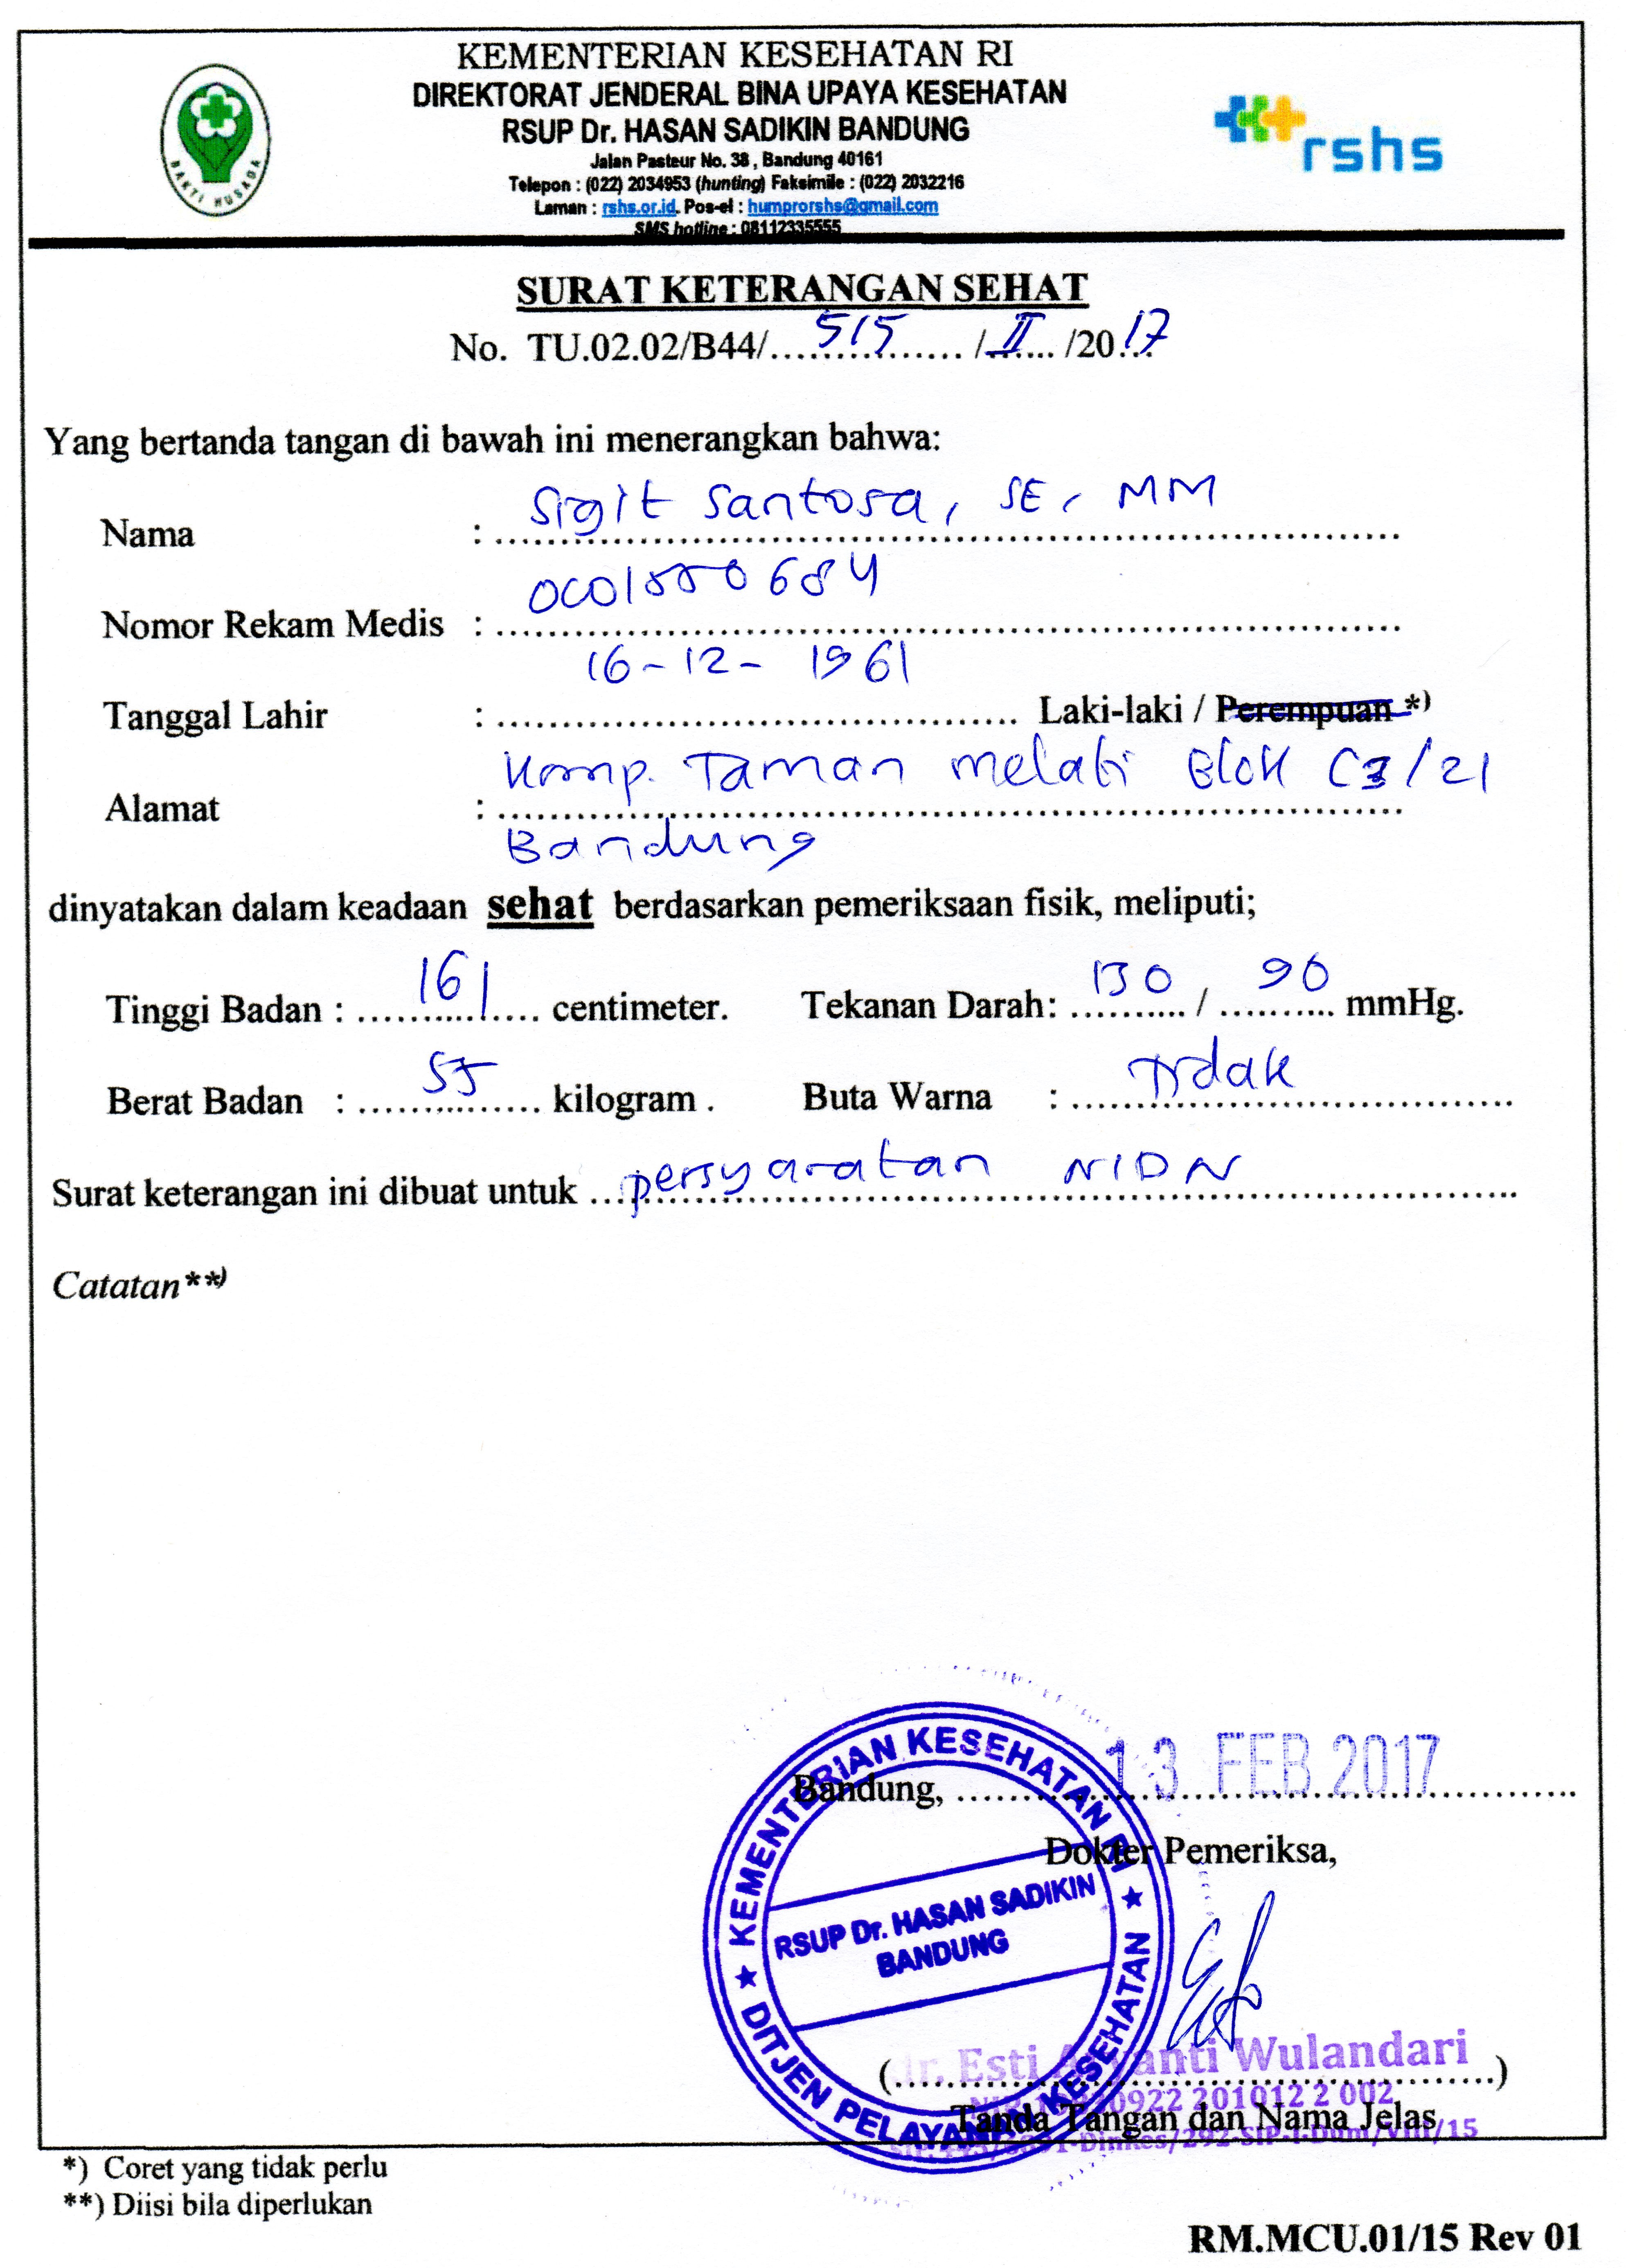 KEMENTERIAN KESEHATAN RI
DIREKTORAT JENDERAL BINA UPAYA KESEHATAN
RSUP Dr. HASAN SADIKIN BANDUNG
Jalan Pasteur No. 38 , Bandung 40161
Telepon : (022) 2034953 (hunting) Faksimile : (022) 2032216
Laman : rshs.or.id. Pos-el : humprorshs@gmail.com
SMS hotline : 08112335555
BAKTI HUSADA
rshs
SURAT KETERANGAN SEHAT
No. TU.02.02/B44/...515... /..II.. /2017
Yang bertanda tangan di bawah ini menerangkan bahwa:
Nama : Sigit Santosa, SE, MM
Nomor Rekam Medis : 0001550684
Tanggal Lahir : 16-12-1961 Laki-laki / Perempuan *)
Alamat : Komp. Taman melati Blok C3/21
Bandung
dinyatakan dalam keadaan sehat berdasarkan pemeriksaan fisik, meliputi;
Tinggi Badan : 161 centimeter. Tekanan Darah: 130 / 90 mmHg.
Berat Badan : 55 kilogram . Buta Warna : Tidak
Surat keterangan ini dibuat untuk persyaratan NIDN
Catatan**)
Bandung, 13 FEB 2017
Dokter Pemeriksa,
KEMENTERIAN KESEHATAN RI
RSUP Dr. HASAN SADIKIN
BANDUNG
DITJEN PELAYANAN KESEHATAN
(dr. Esti Wulandari)
0922 201012 2 002
Tanda Tangan dan Nama Jelas
*) Coret yang tidak perlu
**) Diisi bila diperlukan
RM.MCU.01/15 Rev 01